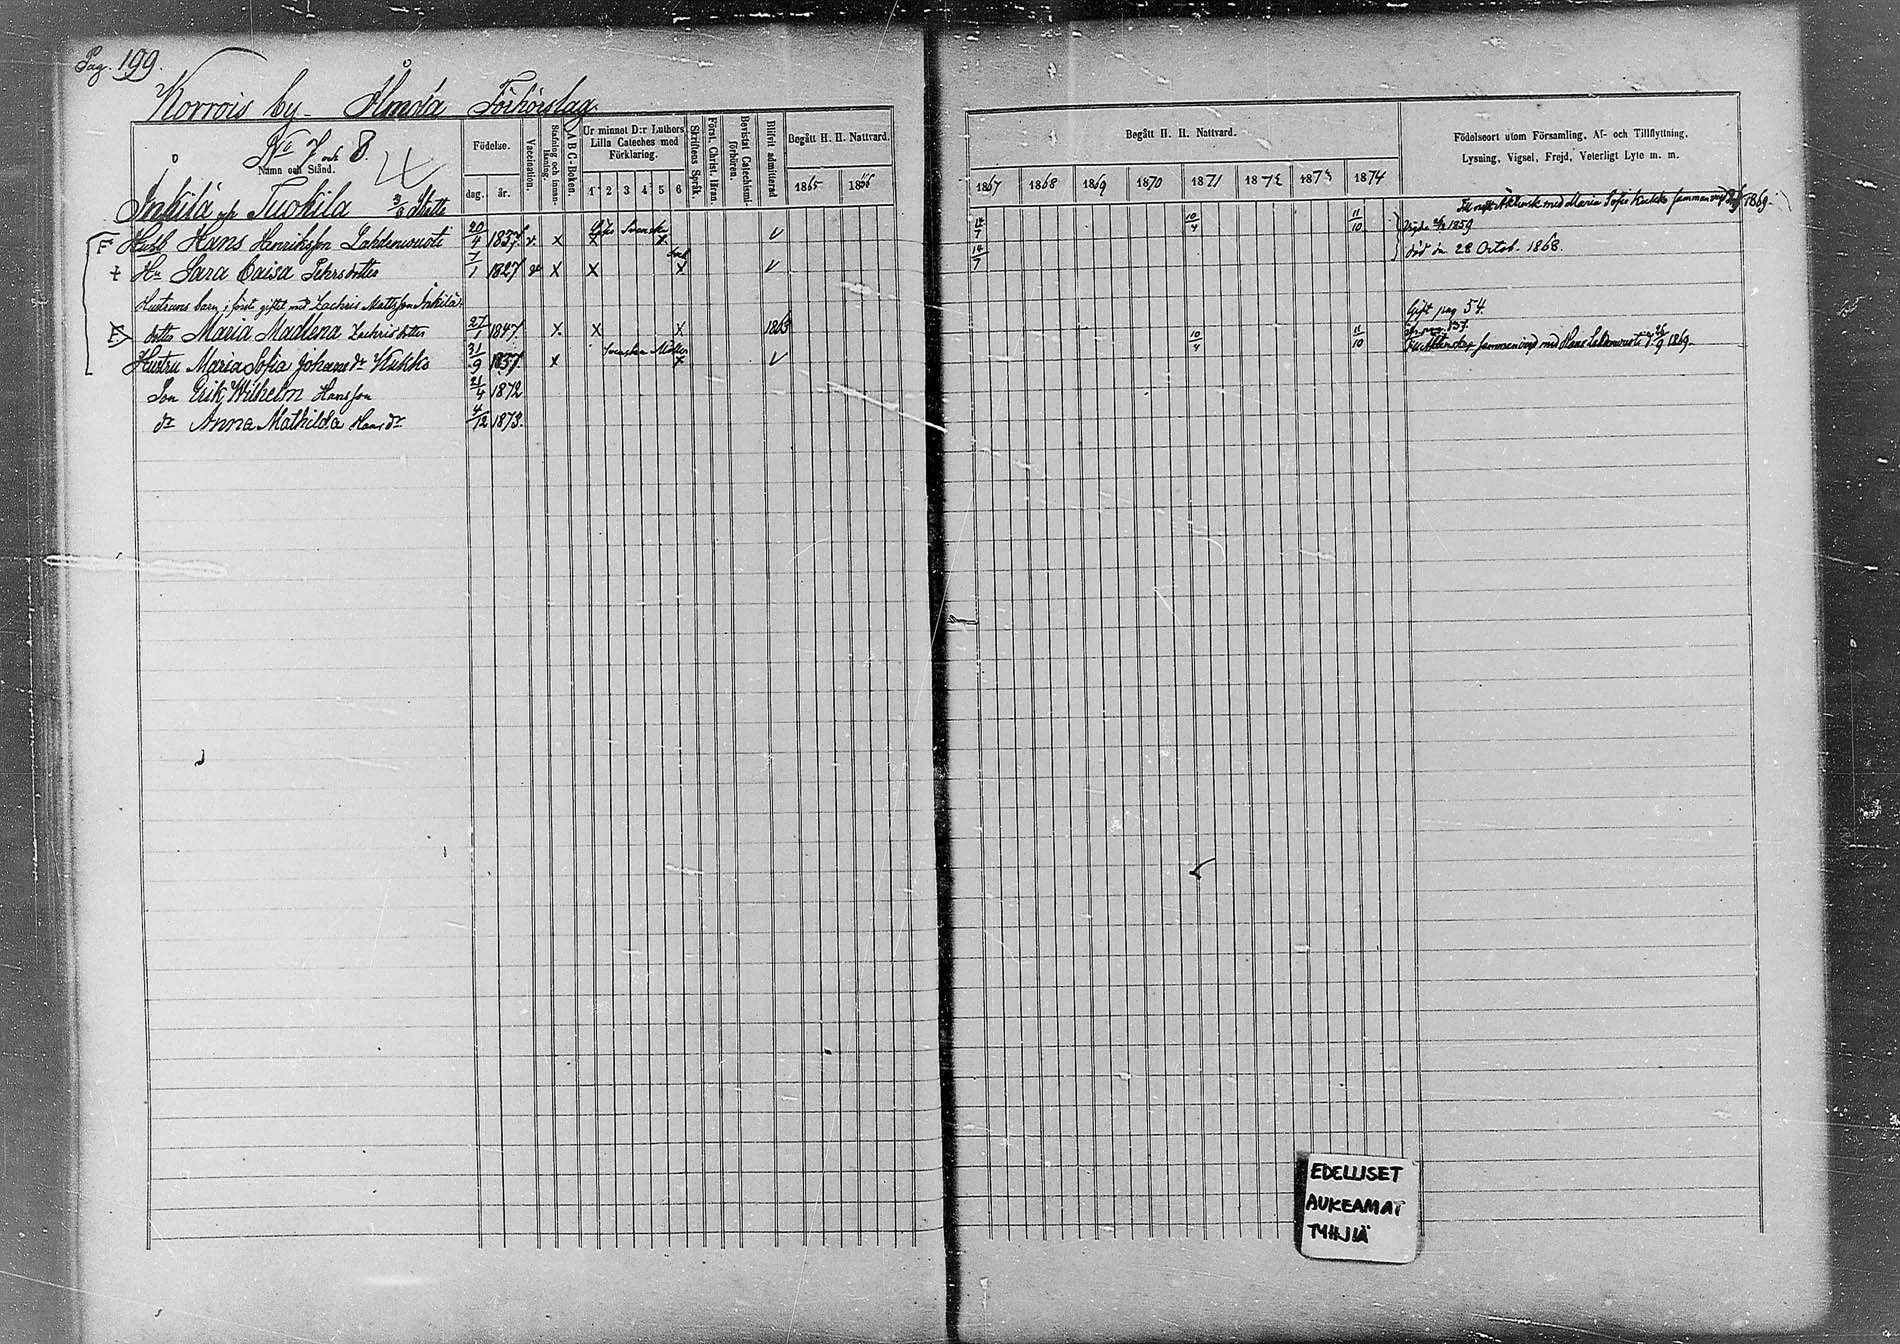 Pag. 199.
Korrois by Förhörslag
No 7 och 8.
Namn och Stånd.
Födelse.
dag. år.
Vaccination.
Stafning och innanläsning.
A B C-Boken.
Ur minnet D:r Luthers Lilla Cateches med Förklaring.
1 2 3 4 5 6
Skriftens Språk.
Först. Christ. läran.
Bevistat Catechismiförhören.
Blifvit admitterad
Begått H. H. Nattvard.
1865 1866
Begått H. H. Nattvard.
1867 1868 1869 1870 1871 1872 1873 1874
Födelseort utom Församling, Af- och Tillflyttning,
Lysning, Vigsel, Frejd, Veterligt Lyte m. m.
Inkilä och Tuokila
med Maria Sofia Kukko 1869
F Husb Hans Henriksson Lahdenwuoti 20/4 1837 v x x x v 14/7 10/4 11/10 1859
† Hu Sara Caisa Pehrsdotter 7/1 1827 v x x x v 14/7 död den 28 Octob. 1868.
Hustruns barn i förste giftet med Zachris Mattsson Inkilä:
Gift pag 54.
dotter Maria Madlena Zachrisdotter 27/1 1847. x x x 1863
Hustru Maria Sofia Johansdr Kukko 31/9 1837. x Svenska x v 10/4 11/10 med Hans Lahdenwuoti 1869.
Son Erik Wilhelm Hansson 21/4 1872
dr Anna Mathilda Hansdr 4/12 1873.
EDELLISET
AUKEAMAT
TYHJIÄ